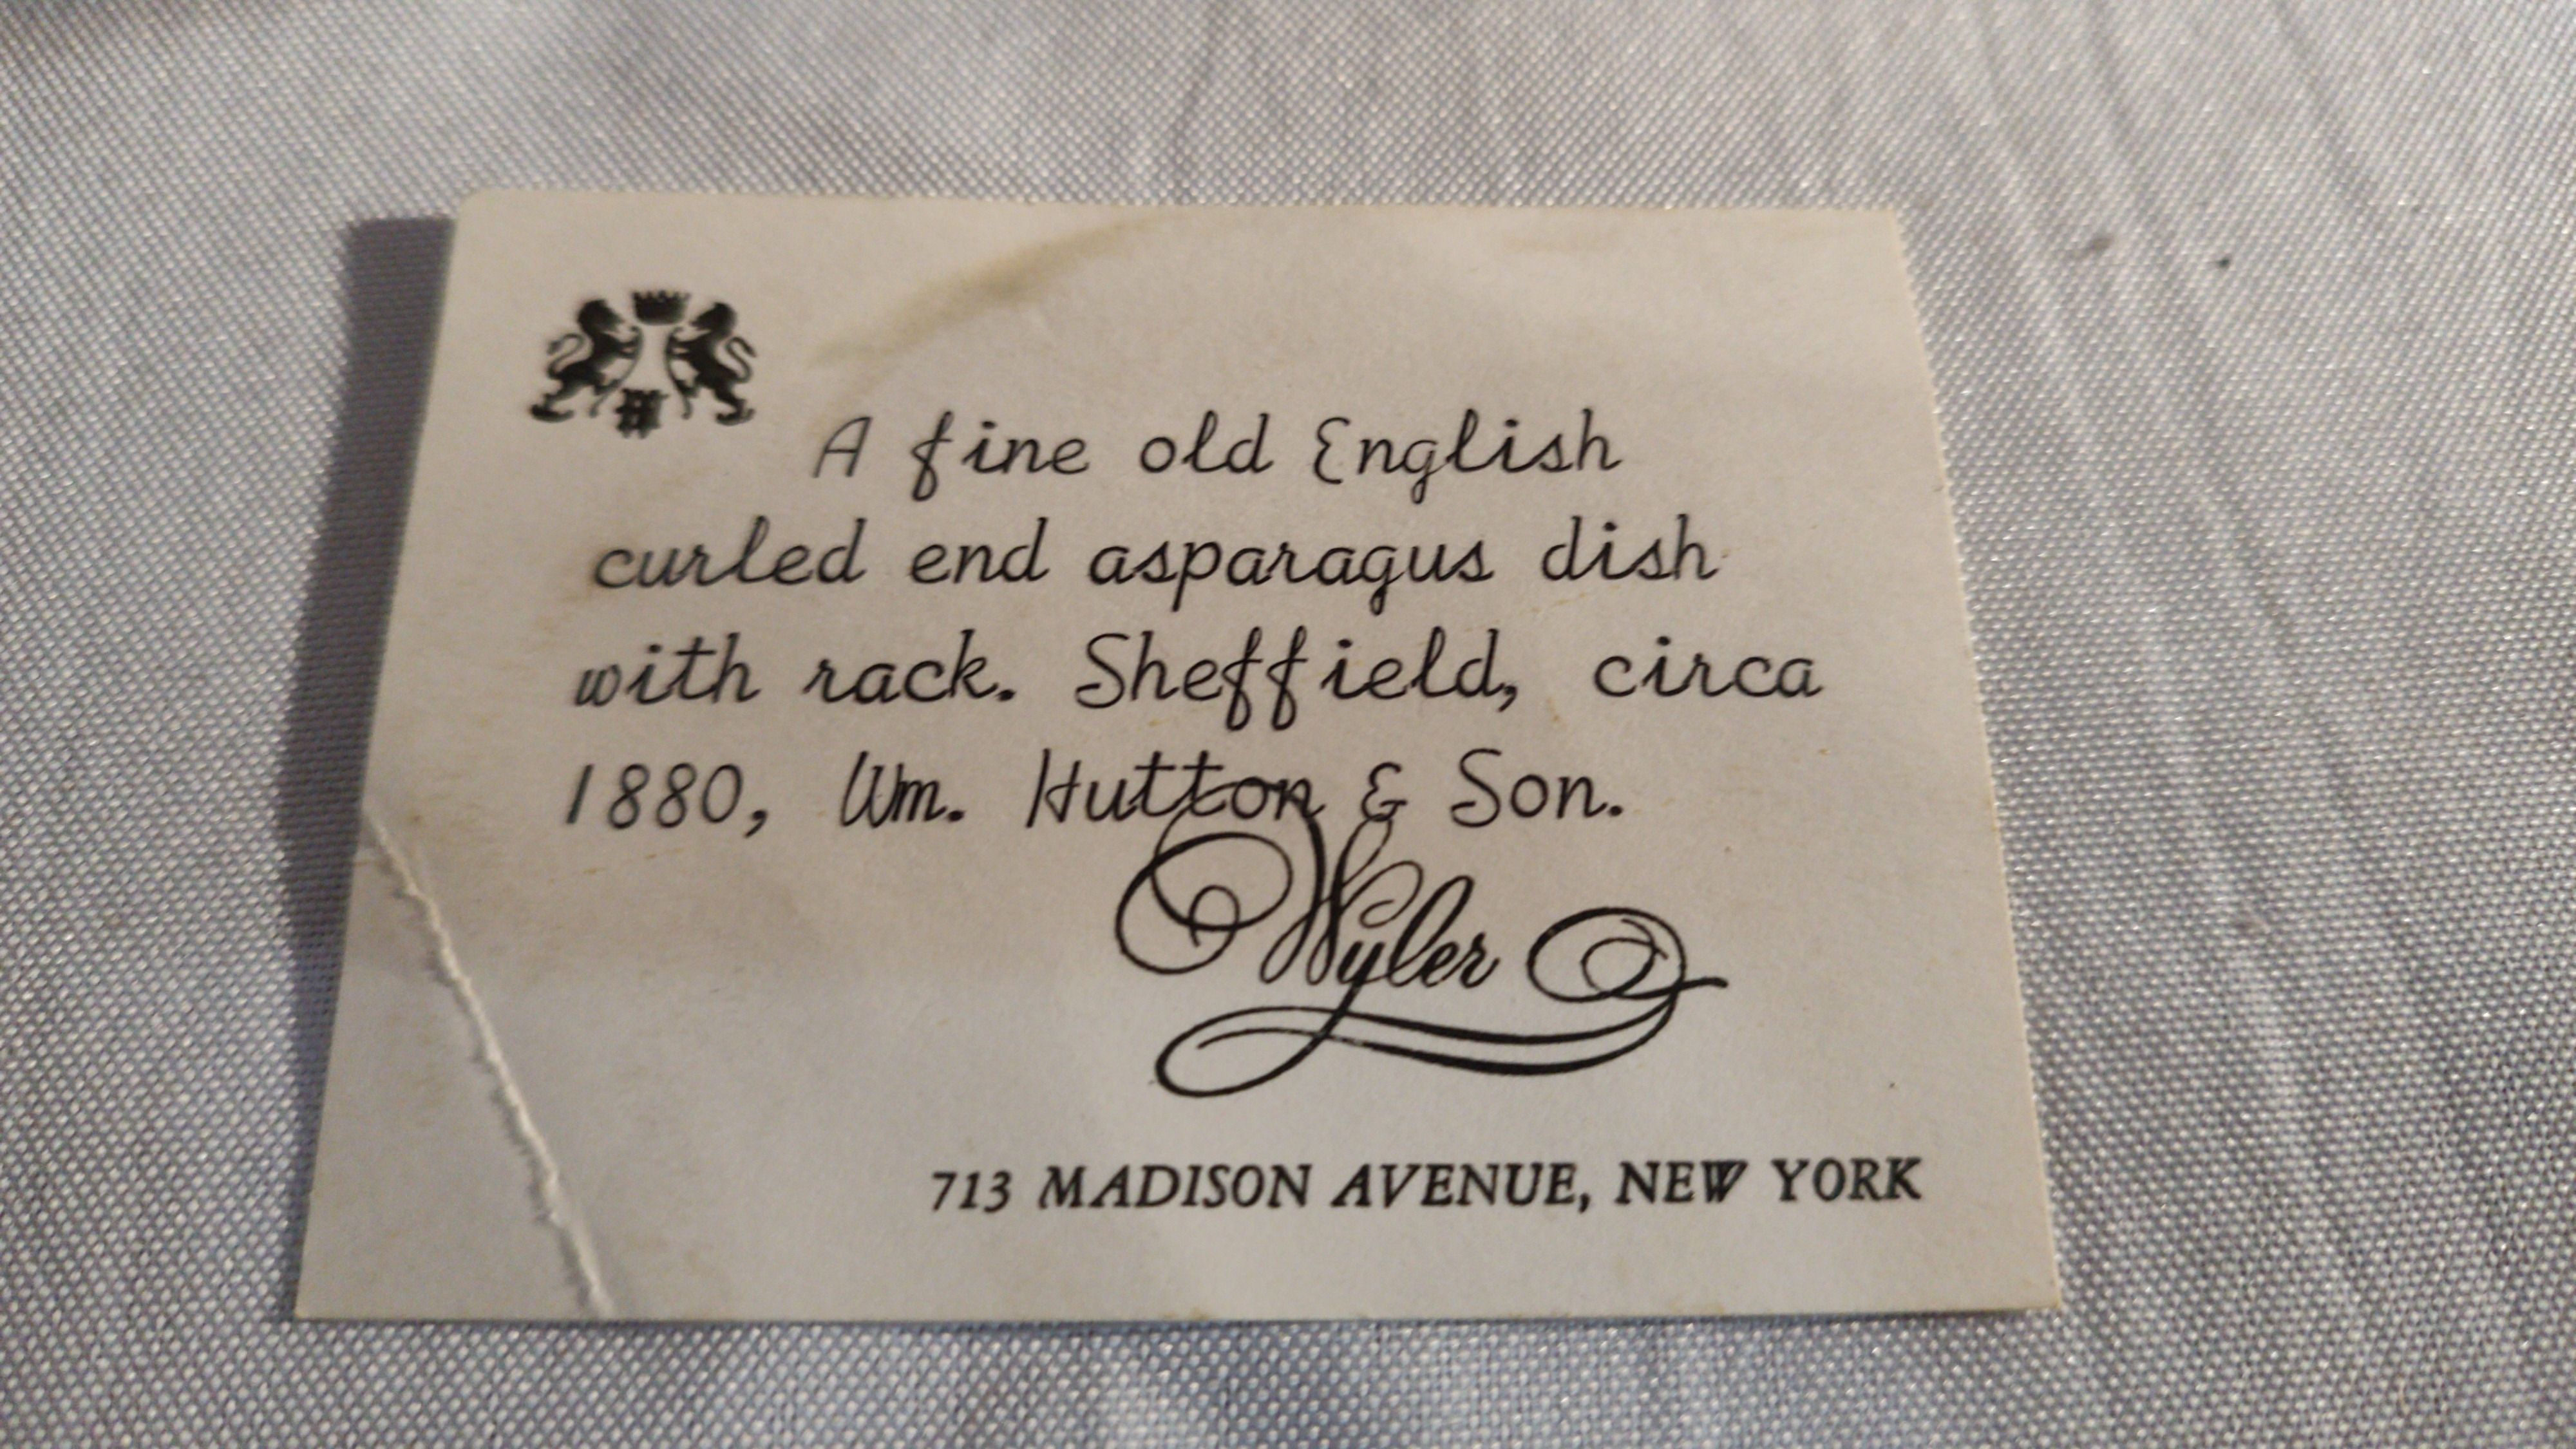 A fine old English
curled end asparagus dish
with rack. Sheffield, circa
1880, Wm. Hutton & Son.
Wyler
713 MADISON AVENUE, NEW YORK